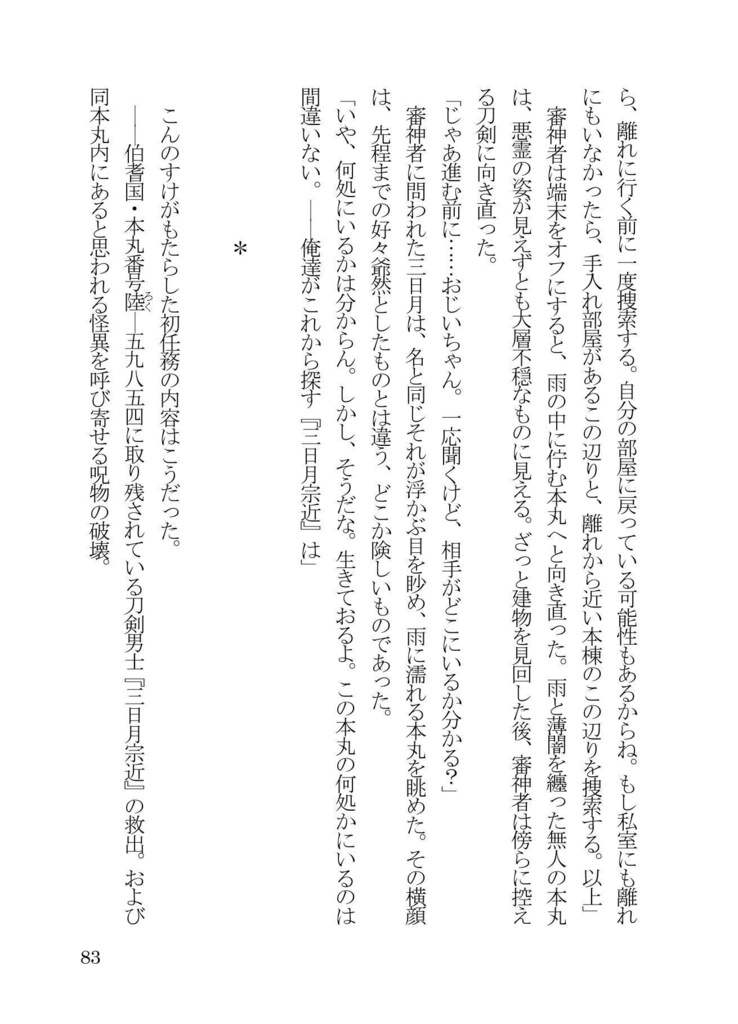 ら、離れに行く前に一度捜索する。自分の部屋に戻っている可能性もあるからね。もし私室にも離れ
にもいなかったら、手入れ部屋があるこの辺りと、離れから近い本棟のこの辺りを捜索する。以上」
審神者は端末をオフにすると、雨の中に佇む本丸へと向き直った。雨と薄闇を纏った無人の本丸
は、悪霊の姿が見えずとも大層不穏なものに見える。ざっと建物を見回した後、審神者は傍らに控え
る刀剣に向き直った。
「じゃあ進む前に……おじいちゃん。一応聞くけど、相手がどこにいるか分かる？」
審神者に問われた三日月は、名と同じそれが浮かぶ目を眇め、雨に濡れる本丸を眺めた。その横顔
は、先程までの好々爺然としたものとは違う、どこか険しいものであった。
「いや、何処にいるかは分からん。しかし、そうだな。生きておるよ。この本丸の何処かにいるのは
間違いない。――俺達がこれから探す『三日月宗近』は」
＊
こんのすけがもたらした初任務の内容はこうだった。
――伯耆国・本丸番号陸―五九八五四に取り残されている刀剣男士『三日月宗近』の救出。および
ろく
同本丸内にあると思われる怪異を呼び寄せる呪物の破壊。
83